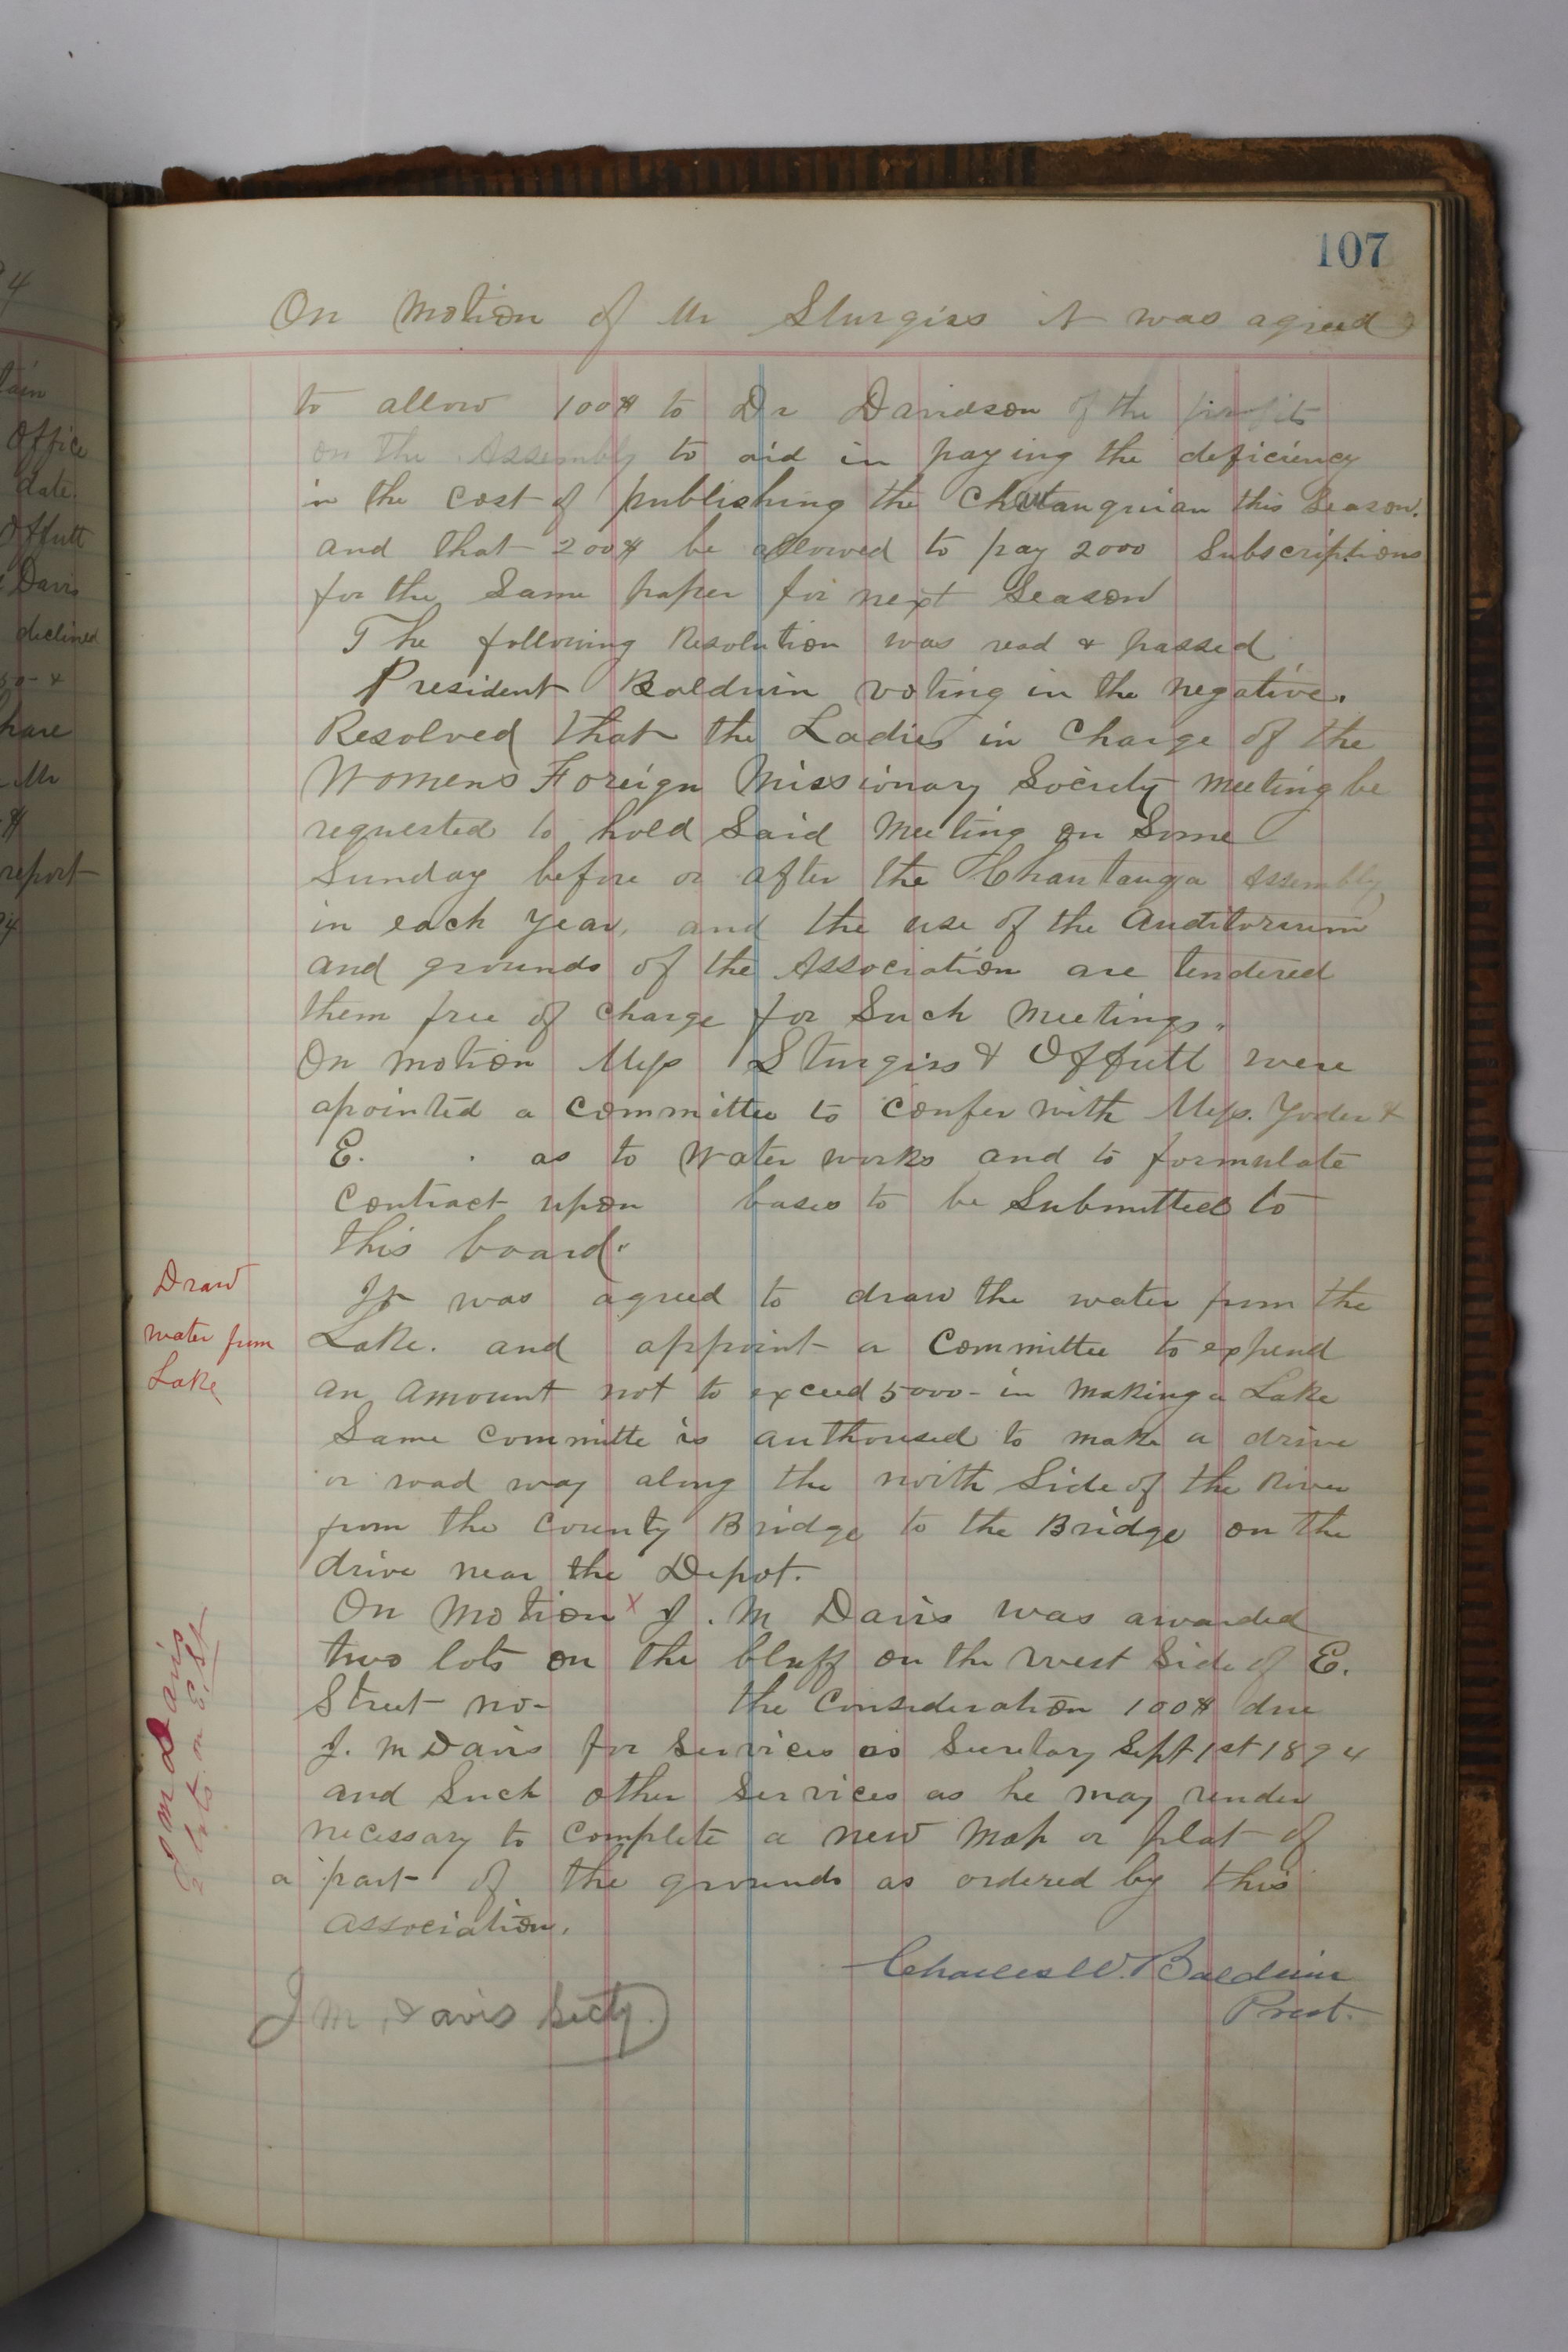 107
On Motion of Mr Sturgiss it was agreed
to allow 100$ to Dr Davidson of the profits
on the Assembly to aid in paying the deficiency
in the cost of publishing the Chautauquian this Season.
and that 200$ be allowed to pay 2000 Subscriptions
for the Same paper for next Season
The following Resolution was read & passed
President Baldwin voting in the negative.
Resolved that the Ladies in Charge of the
Womens Foreign Missionary Society meeting be
requested to hold Said Meeting on Some
Sunday before or after the Chautauqa Assembly
in each year, and the use of the Auditorium
and grounds of the Association are tendered
them free of charge for Such Meetings.
On motion Mess Sturgiss & Offutt were
apointed a committee to confer with Mess. Yoder &
E. . as to Water works and to formulate
Contract upon bases to be Submitted to
this board.
Draw
water from
Lake
It was agreed to draw the water from the
Lake. and appoint a Committee to expend
an amount not to exceed 5000- in Making a Lake
Same committe is authorised to make a drive
or road way along the north Side of the River
from the County Bridge to the Bridge on the
drive near the Depot.
J M Davis
2 lots on E. St
On Motion x J. M Davis was awarded
two lots on the bluff on the West Side of E.
Street no- the Consideration 100$ due
J. M Davis for Services as Secretary Sept 1st 1894
and Such other Services as he may render
necessary to complete a new Map or plat of
a part of the grounds as ordered by this
Association.
Charles W. Baldwin
Prest.
J M, Davis Secty.
4
tain
Office
date.
Offutt
Davis
declined
&
hare
Mr
$
report